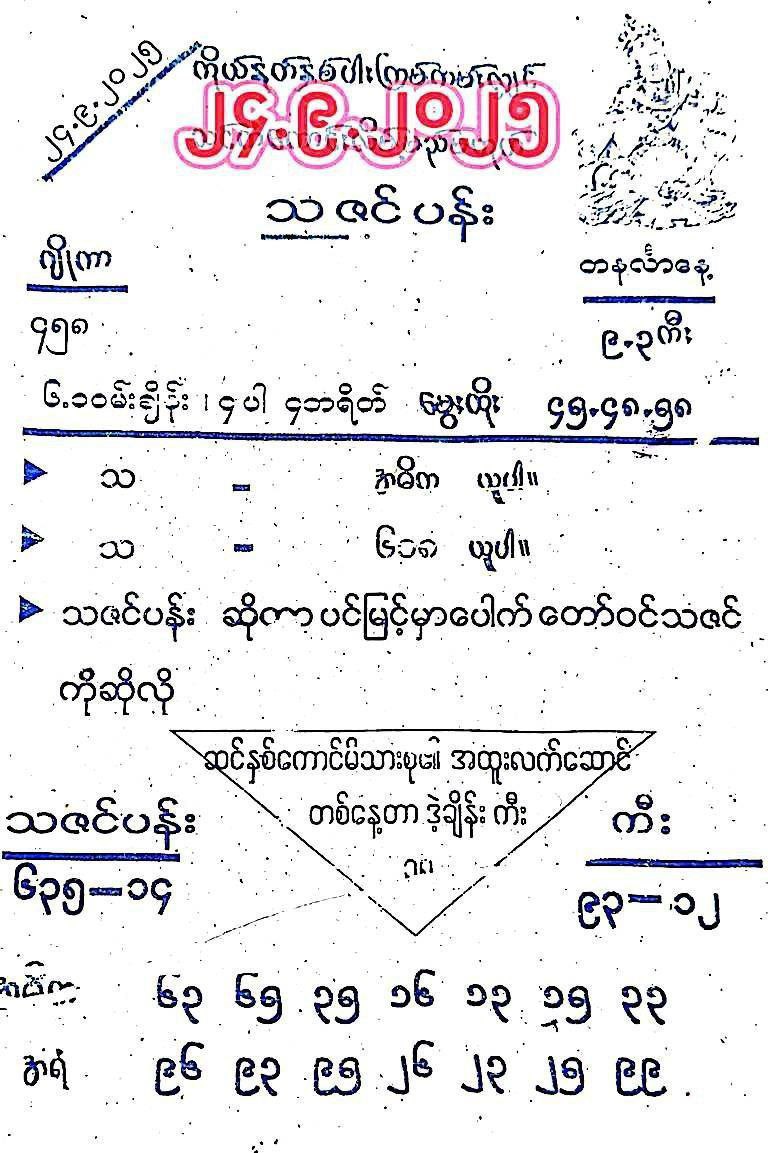 ၂၄.၉.၂၀၂၅
၂၄.၉.၂၀၂၅
သဇင်ပန်း
ဂျိုကာ
တနင်္လာနေ့
၄၅၈
၉.၃ကီး
၆.၁၀ဝမ်းချိန်း ၊ ၄ပါ ၄ဘရိတ် မွေးထိုး ၄၅.၄၈.၅၈
သ - အဓိက ယူပါ။
သ - ၆၁၈ ယူပါ။
သဇင်ပန်း ဆိုကာ ပင်မြင့်မှာပေါက် တော်ဝင်သဇင်
ကိုဆိုလို
ဆင်နှစ်ကောင်မိသားစု အထူးလက်ဆောင်
တစ်နေ့တာ ဒဲ့ချိန်း ကီး
သဇင်ပန်း
ကီး
၆၃၅-၁၄
၉၃-၁၂
၆၃ ၆၅ ၃၅ ၁၆ ၁၃ ၁၅ ၃၃
အရံ ၉၆ ၉၃ ၉၅ ၂၆ ၂၃ ၂၅ ၉၉